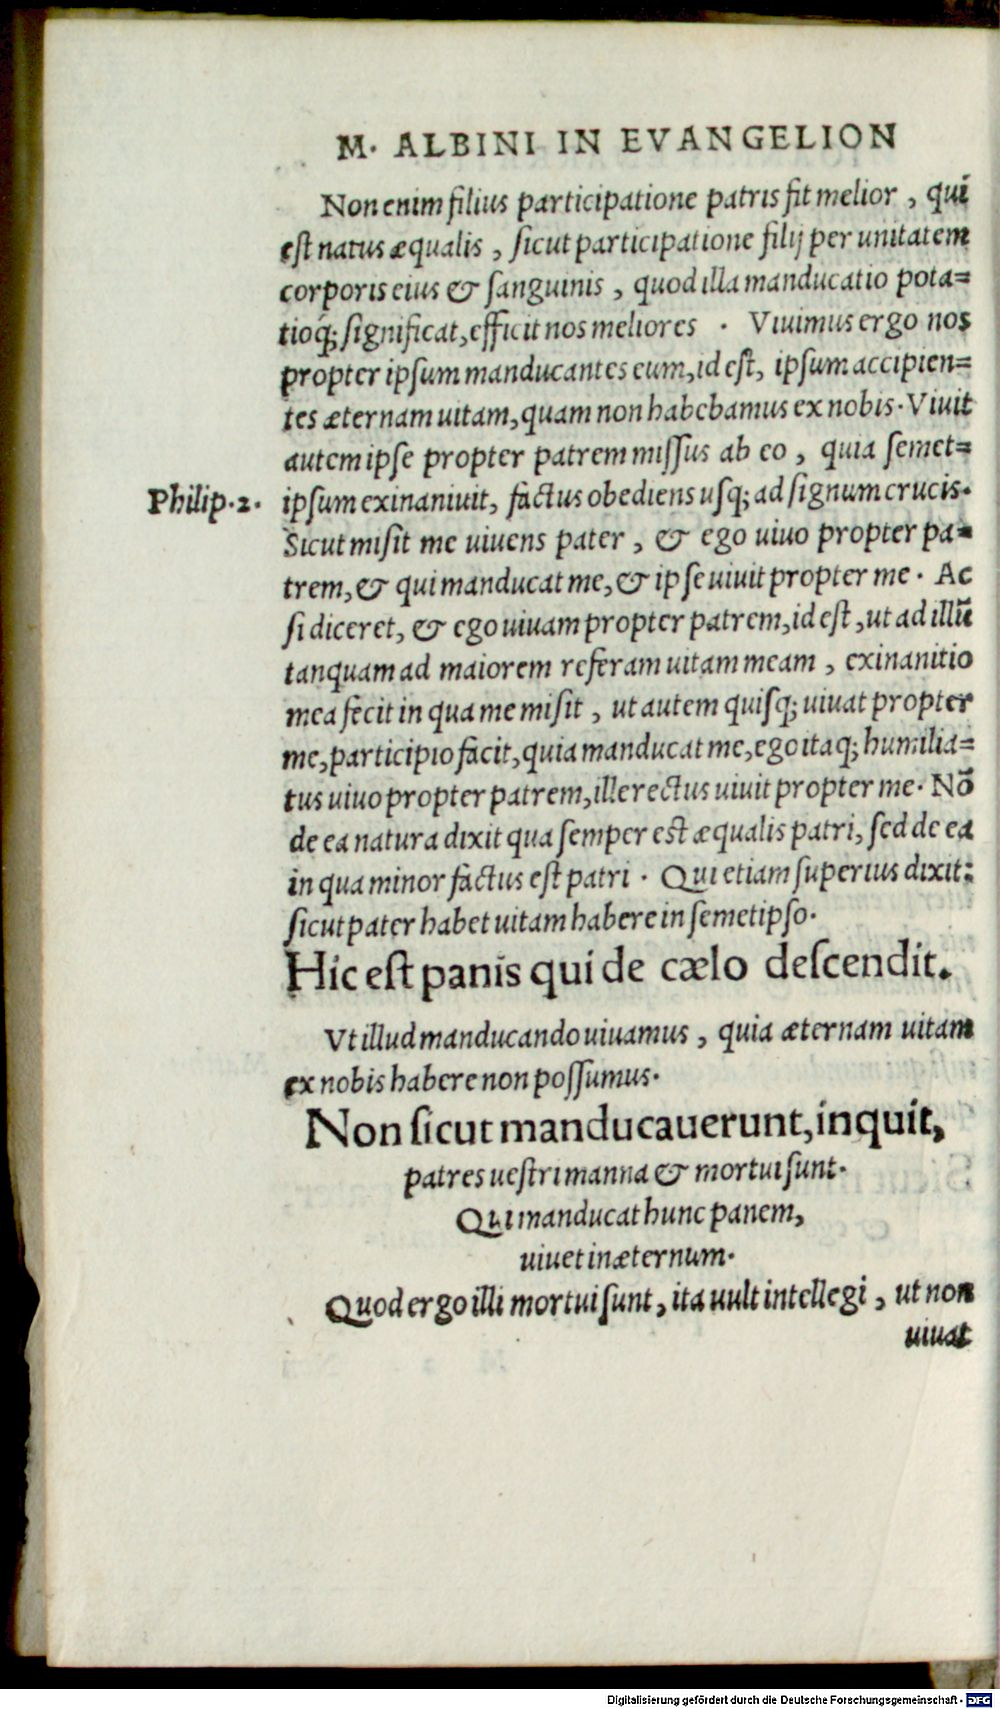 M. ALBINI IN EVANGELION
Non enim filius participatione patris fit melior, qui
est natus æqualis, sicut participatione filij per unitatem
corporis eius & sanguinis, quod illa manducatio pota=
tioq́; significat, efficit nos meliores. Viuimus ergo nos
propter ipsum manducantes eum, id est, ipsum accipien=
tes æternam uitam, quam non habebamus ex nobis. Viuit
autem ipse propter patrem missus ab eo, quia semet=
Philip. 2. ipsum exinaniuit, factus obediens usq; ad signum crucis.
Sicut misit me uiuens pater, & ego uiuo propter pa=
trem, & qui manducat me, & ipse uiuit propter me. Ac
si diceret, & ego uiuam propter patrem, id est, ut ad illū
tanquam ad maiorem referam uitam meam, exinanitio
mea fecit in qua me misit, ut autem quisq; uiuat propter
me, participio facit, quia manducat me, ego itaq; humilia=
tus uiuo propter patrem, ille rectus uiuit propter me. Nō
de ea natura dixit qua semper est æqualis patri, sed de ea
in qua minor factus est patri. Qui etiam superius dixit:
sicut pater habet uitam habere in semetipso.
Hic est panis qui de cælo descendit.
Vt illud manducando uiuamus, quia æternam uitam
ex nobis habere non possumus.
Non sicut manducauerunt, inquit,
patres uestri manna & mortui sunt.
Qui manducat hunc panem,
uiuet in æternum.
Quod ergo illi mortui sunt, ita uult intellegi, ut non
uiuat
Digitalisierung gefördert durch die Deutsche Forschungsgemeinschaft - DFG